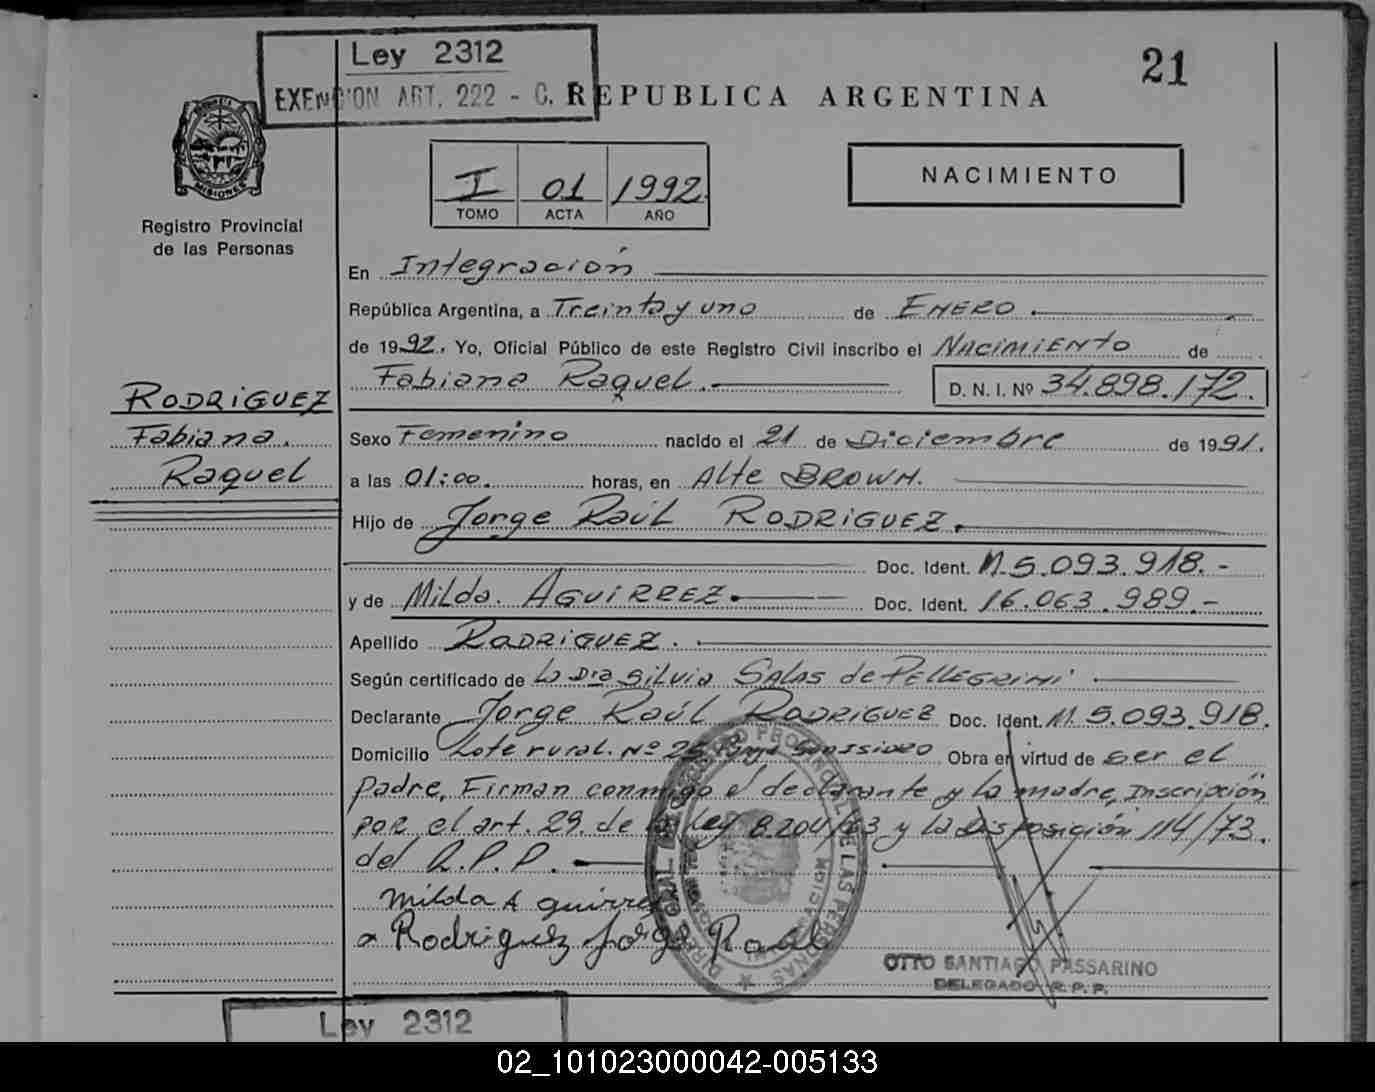 Ley 2312
EXENCION ART. 222 - C.
REPUBLICA ARGENTINA
21
MISIONES
Registro Provincial
de las Personas
I 01 1992
TOMO ACTA AÑO
NACIMIENTO
En Integración
República Argentina, a Treinta y uno de ENERO
de 1992. Yo, Oficial Público de este Registro Civil inscribo el NACIMIENTO de
Fabiana Raquel. D. N. I. Nº 34.898.172.
RODRIGUEZ
Fabiana.
Raquel
Sexo Femenino nacido el 21 de Diciembre de 1991.
a las 01:00. horas, en Alte BROWN.
Hijo de Jorge Raúl RODRIGUEZ.
Doc. Ident. M.5.093.918.-
y de Milda. AGUIRREZ Doc. Ident. 16.063.989.-
Apellido RODRIGUEZ.
Según certificado de La Dra Silvia SALAS de PELLEGRINI
Declarante Jorge Raúl RODRIGUEZ Doc. Ident. M.5.093.918.
Domicilio Lote rural. Nº 25 Obra en virtud de ser el
padre, Firman conmigo el declarante y la madre, Inscripción
por el art. 29. de la Ley 8.204/63 y la Disposición 114/73.
del R.P.P.
Milda Aguirre
Rodriguez Jorge Raul
OTTO SANTIAGO PASSARINO
DELEGADO R.P.P.
Ley 2312
02_101023000042-005133